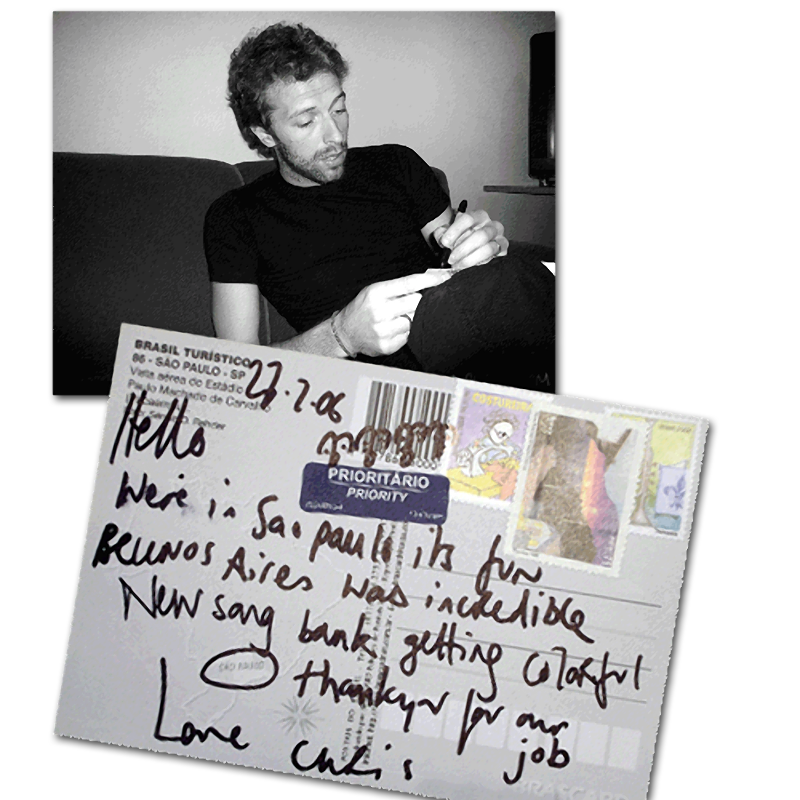 BRASIL TURÍSTICO
86 - SÃO PAULO - SP
Vista aérea do Estádio
Paulo Machado de Carvalho
27.2.06
Hello
PRIORITÁRIO
PRIORITY
Were in Sao paulo its fun
BEUNOS Aires was incredible
New song bank getting colorful
SÃO PAULO
thankyou for our
job
Love Chris